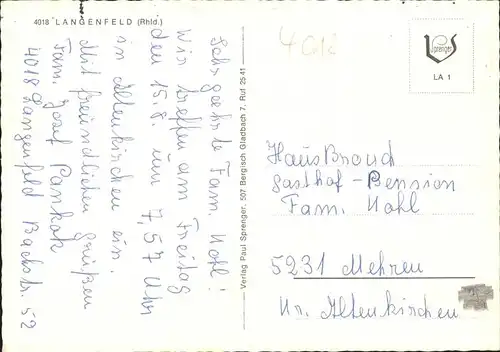 4018 LANGENFELD (Rhld.)
Sehr geehrte Fam. Kohl!
Wir treffen am Freitag
den 15.8. um 7,57 Uhr
in Altenkirchen ein.
Mit freundlichen Grüßen
Fam. Josef Pankok
4018 Langenfeld Bachstr. 52
Verlag Paul Sprenger, 507 Bergisch Gladbach 7, Ruf 25 41
Sprenger
LA 1
Haus Broud
Gasthof - Pension
Fam. Kohl
5231 Mehren
Kr. Altenkirchen